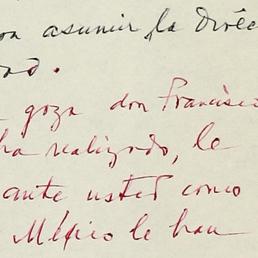 asumir la direc
goza don Francisc
ha realizado, le
ante usted como
México le han